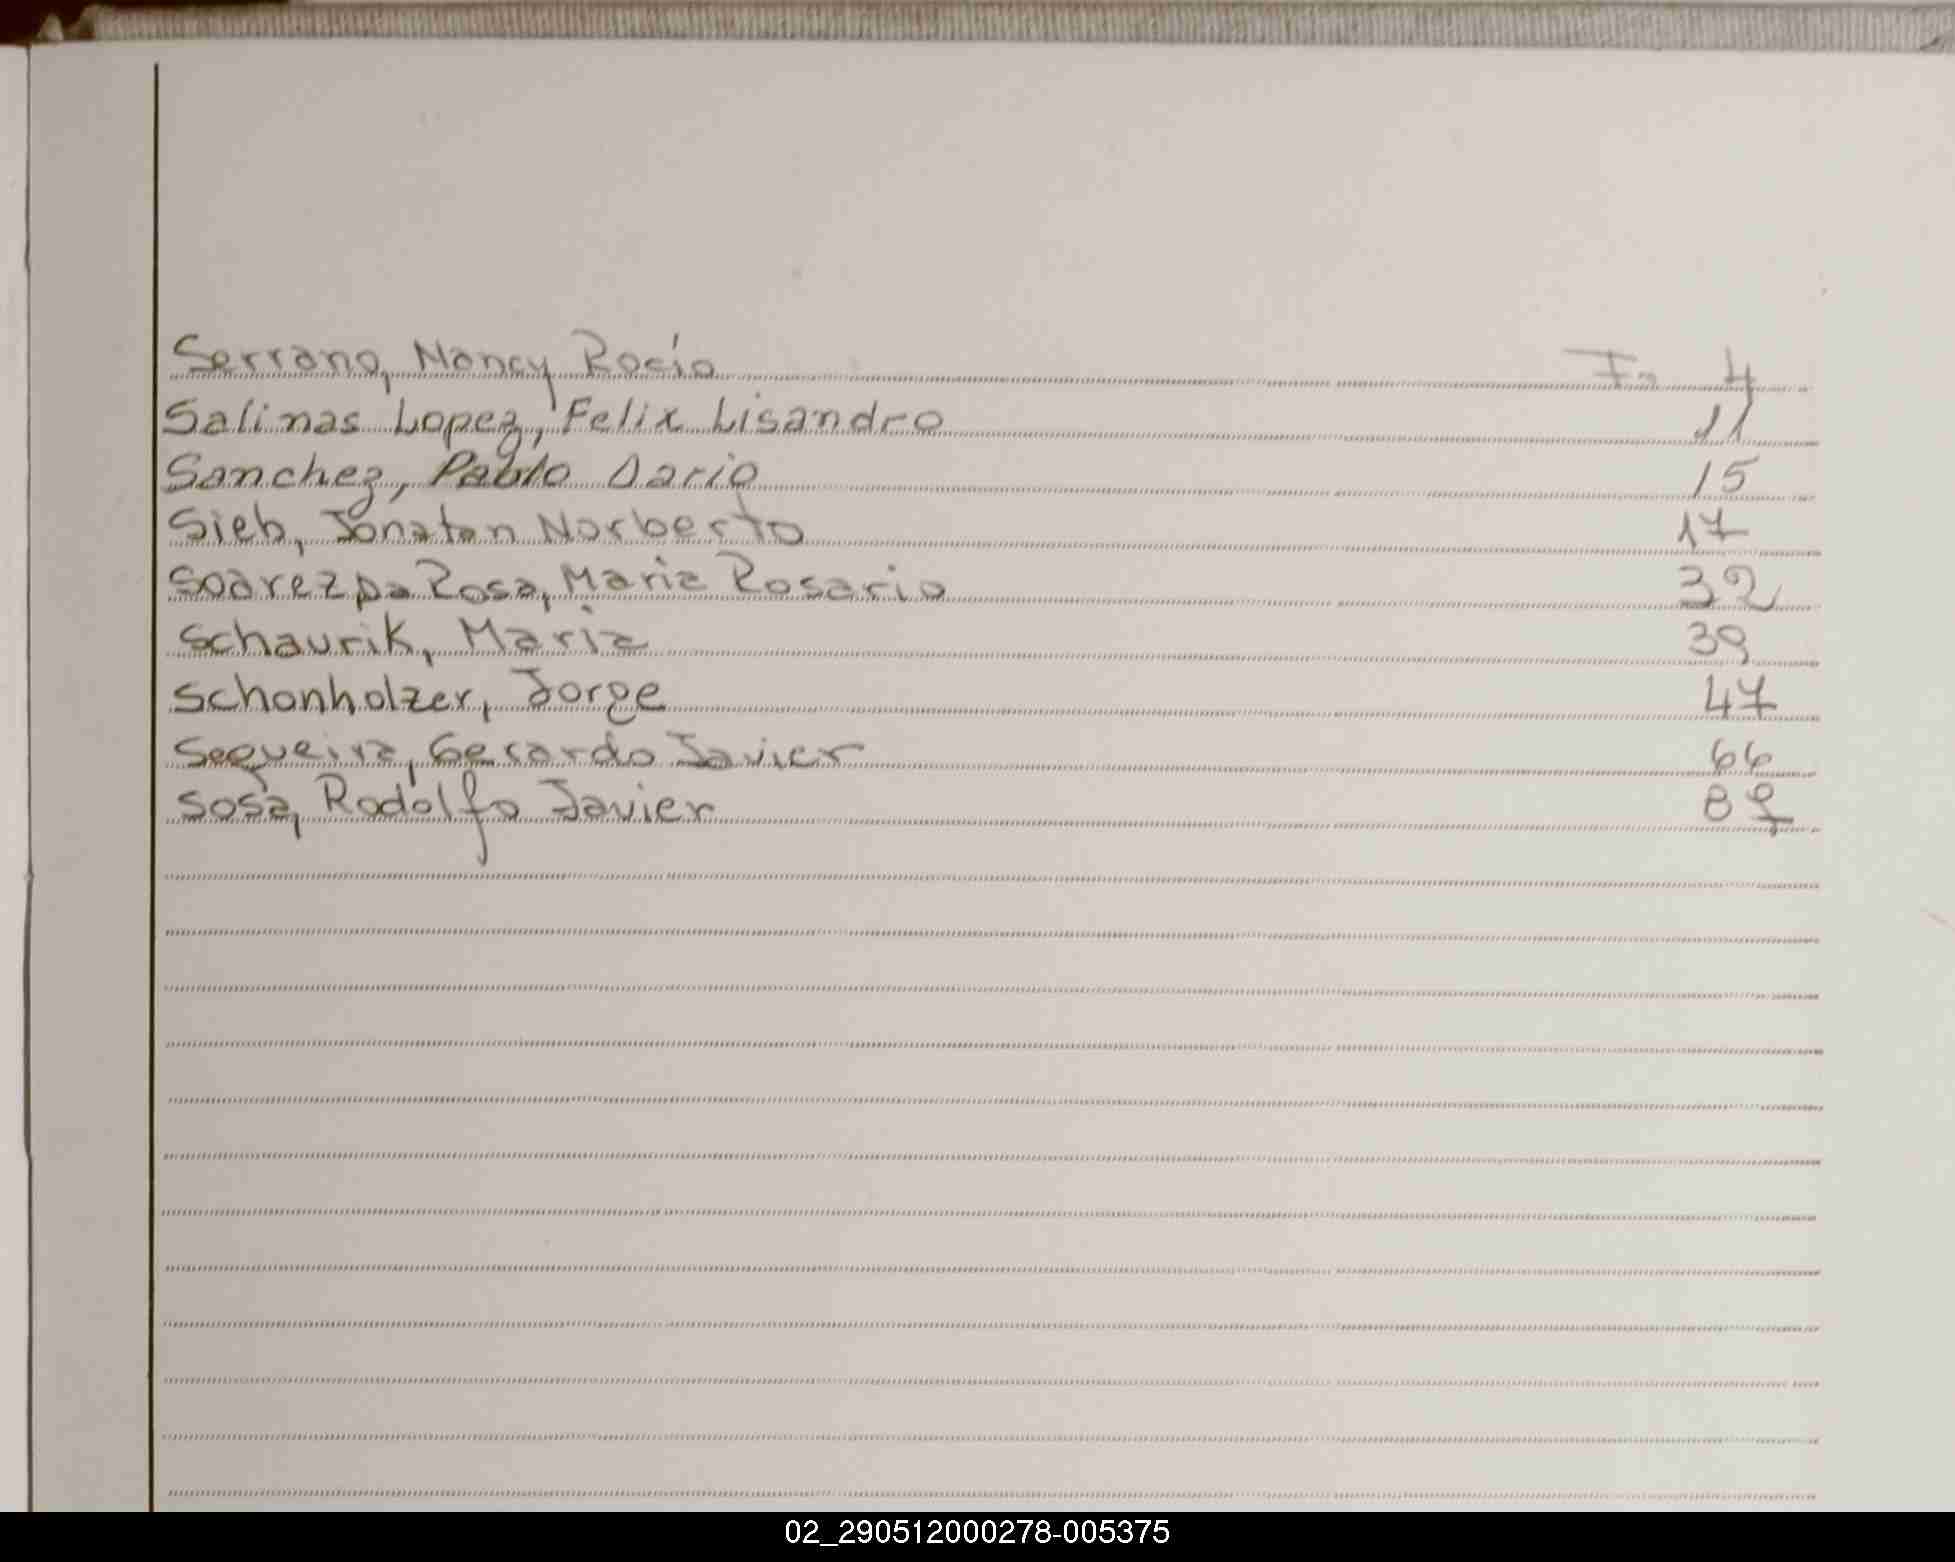 Serrano, Nancy Rocío Fo 4
Salinas Lopez, Felix Lisandro 11
Sanchez, Pablo Dario 15
Sieb, Jonatan Norberto 17
Soarez Da Rosa, Maria Rosario 32
Schaurik, Maria 39
Schonholzer, Jorge 47
Seqveira, Gerardo Javier 66
Sosa, Rodolfo Javier 87
02_290512000278-005375